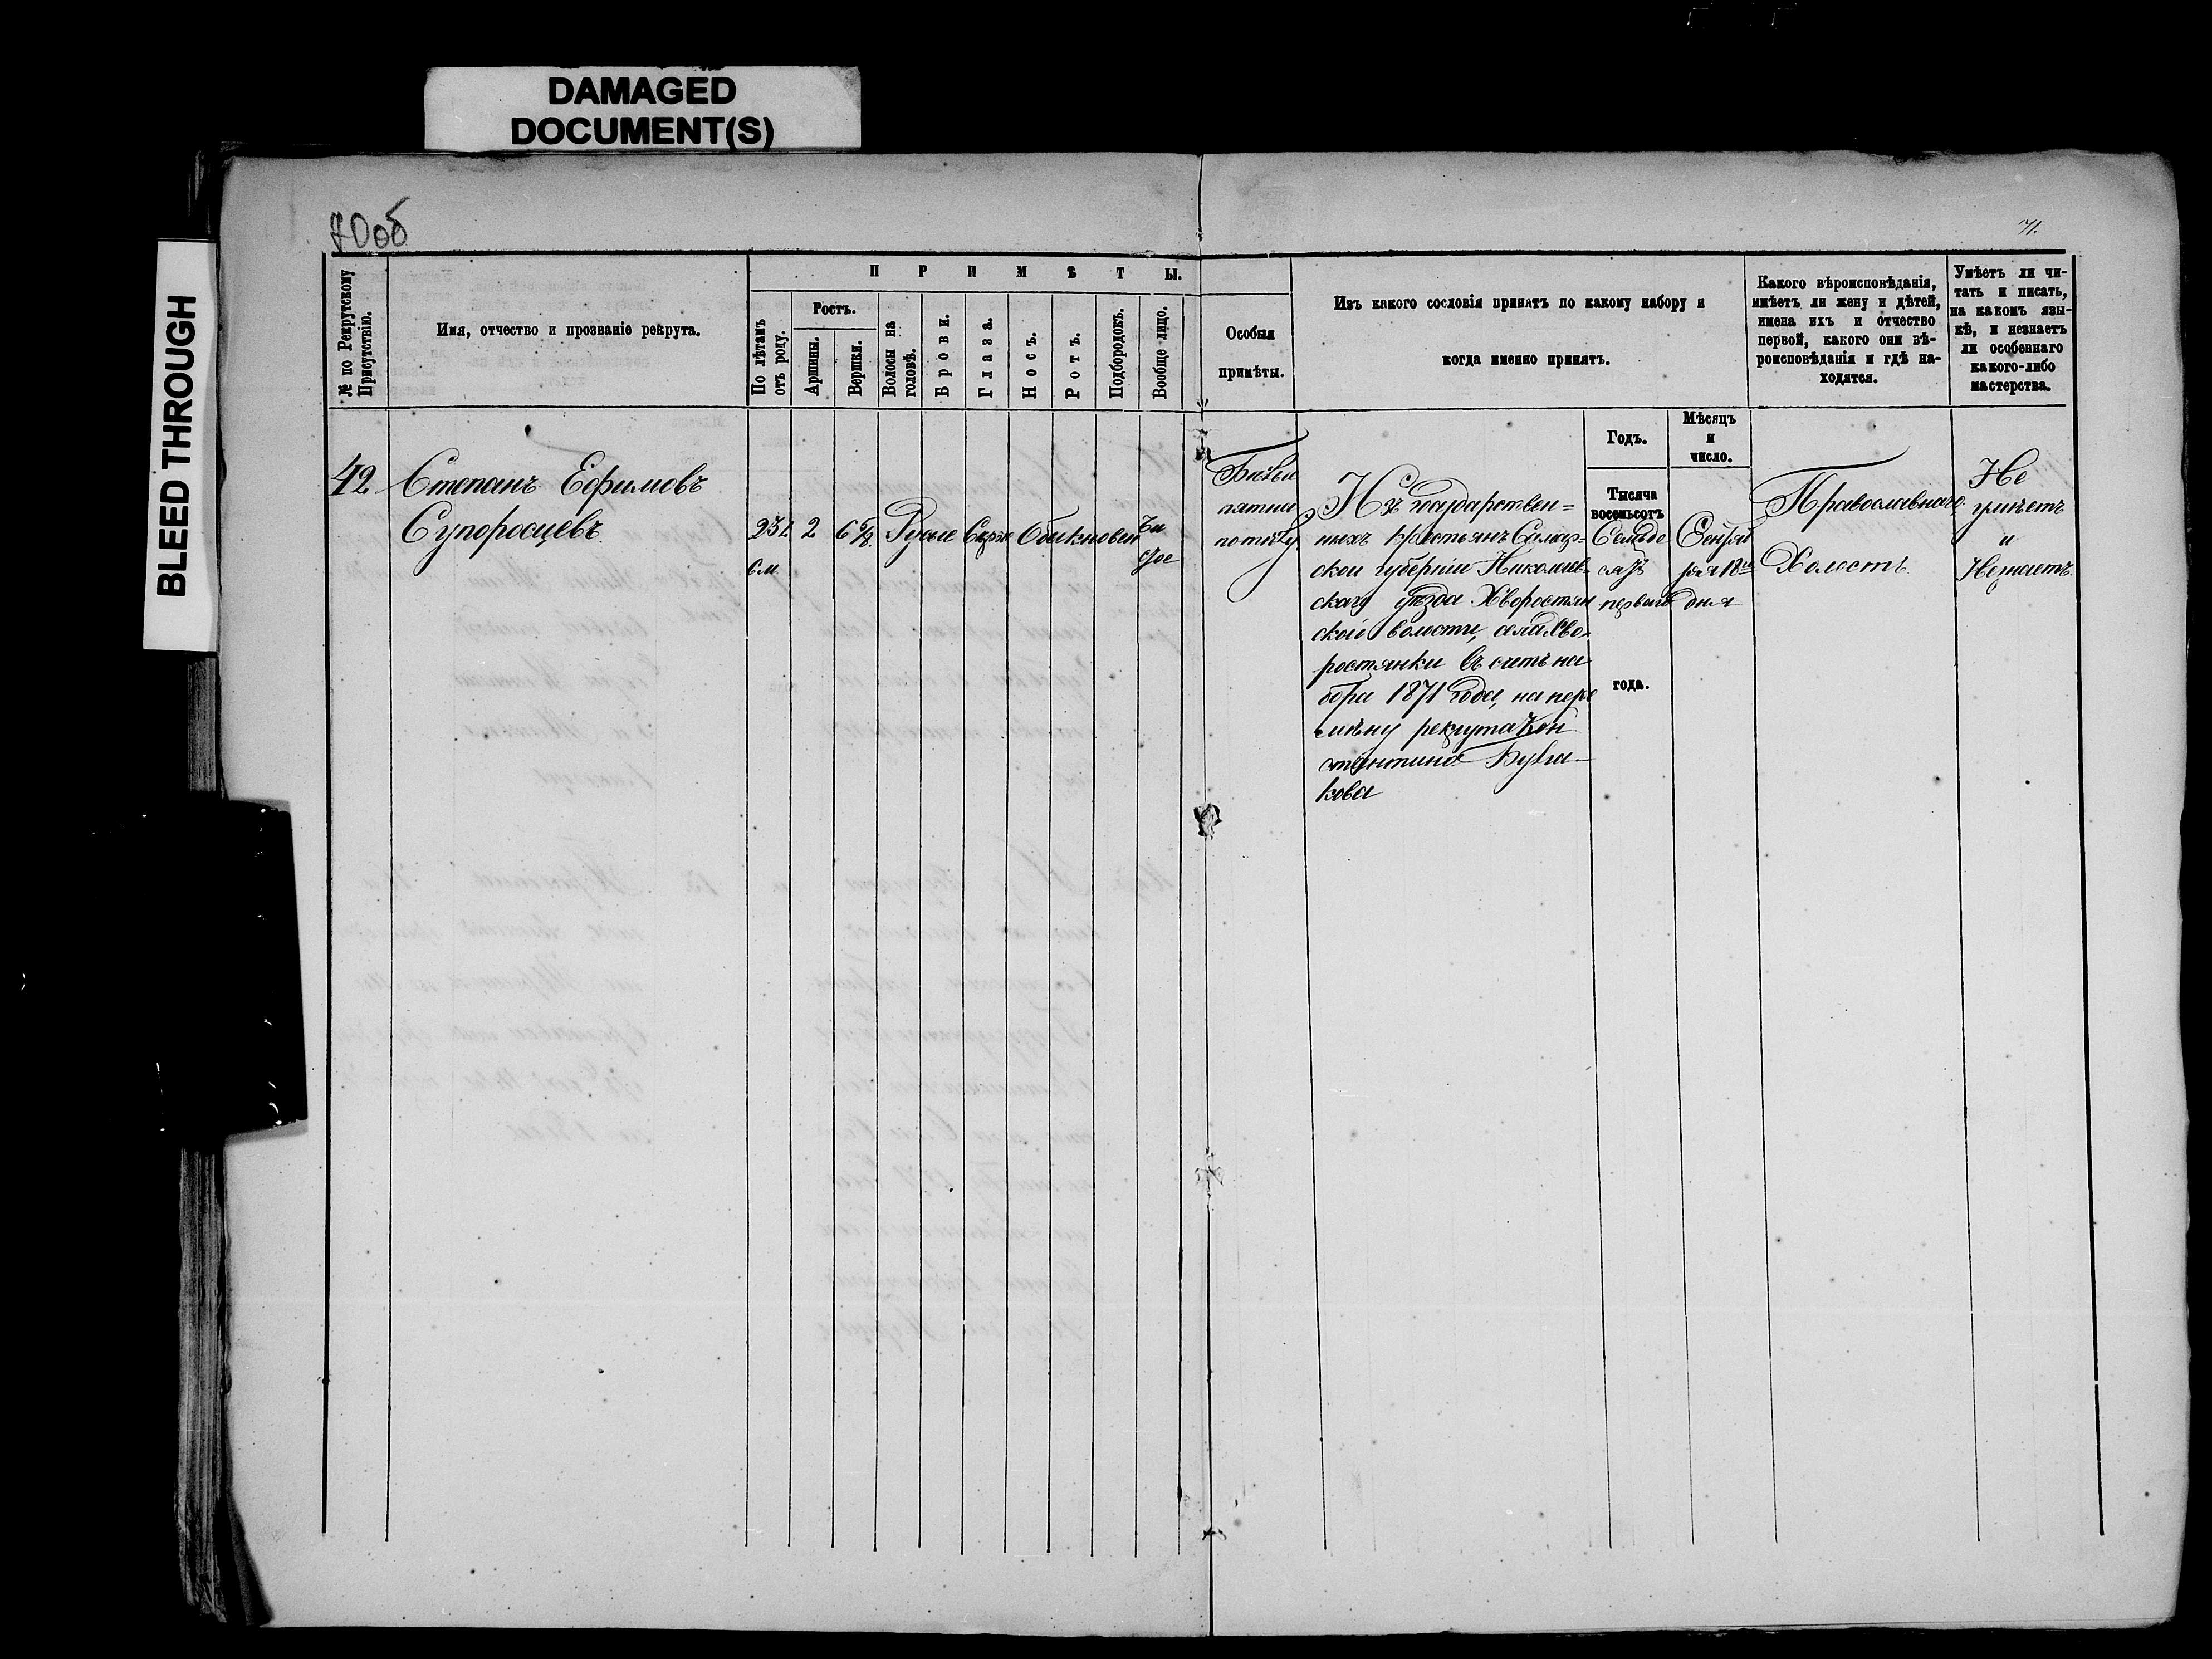 DAMAGED
DOCUMENT(S)
BLEED THROUGH
70об
71.
№ по Рекрутскому
Присутствію.
Имя, отчество и прозваніе рекрута.
ПРИМѢТЫ.
По лѣтамъ
отъ роду.
Ростъ.
Аршины.
Вершки.
Волосы на
головѣ.
Брови.
Глаза.
Носъ.
Ротъ.
Подбородокъ.
Вообще лицо.
Особыя
примѣты.
Изъ какого сословія принятъ по какому набору и
когда именно принятъ.
Какого вѣроисповѣданія,
имѣетъ ли жену и дѣтей,
имена ихъ и отчество
первой, какого они вѣ-
роисповѣданія и гдѣ на-
ходятся.
Умѣетъ ли чи-
тать и писать,
на какомъ язы-
кѣ, и незнаетъ
ли особеннаго
какого-либо
мастерства.
Годъ.
Мѣсяцъ
и
число.
42
Степанъ Ефимовъ
Супоросцевъ
23 1/2
6 м
2
6 5/8
Русые
Серые
Обыкновен
Чи
стое
пятна
Изъ государствен=
ныхъ крестьянъ Самар-
ской губерніи Николаев-
скаго уѣзда Хворостян
ской волости, села Хво-
ростянки въ счетъ на
бора 1871 года, на пере
мѣну рекрута Кон
стантина
кова
Тысяча
восемьсотъ
Семьде
сятъ
перваго
года.
Сентяб
ря 18го
дня
Православнаго
Холостъ
Не
умѣетъ
и
Незнаетъ